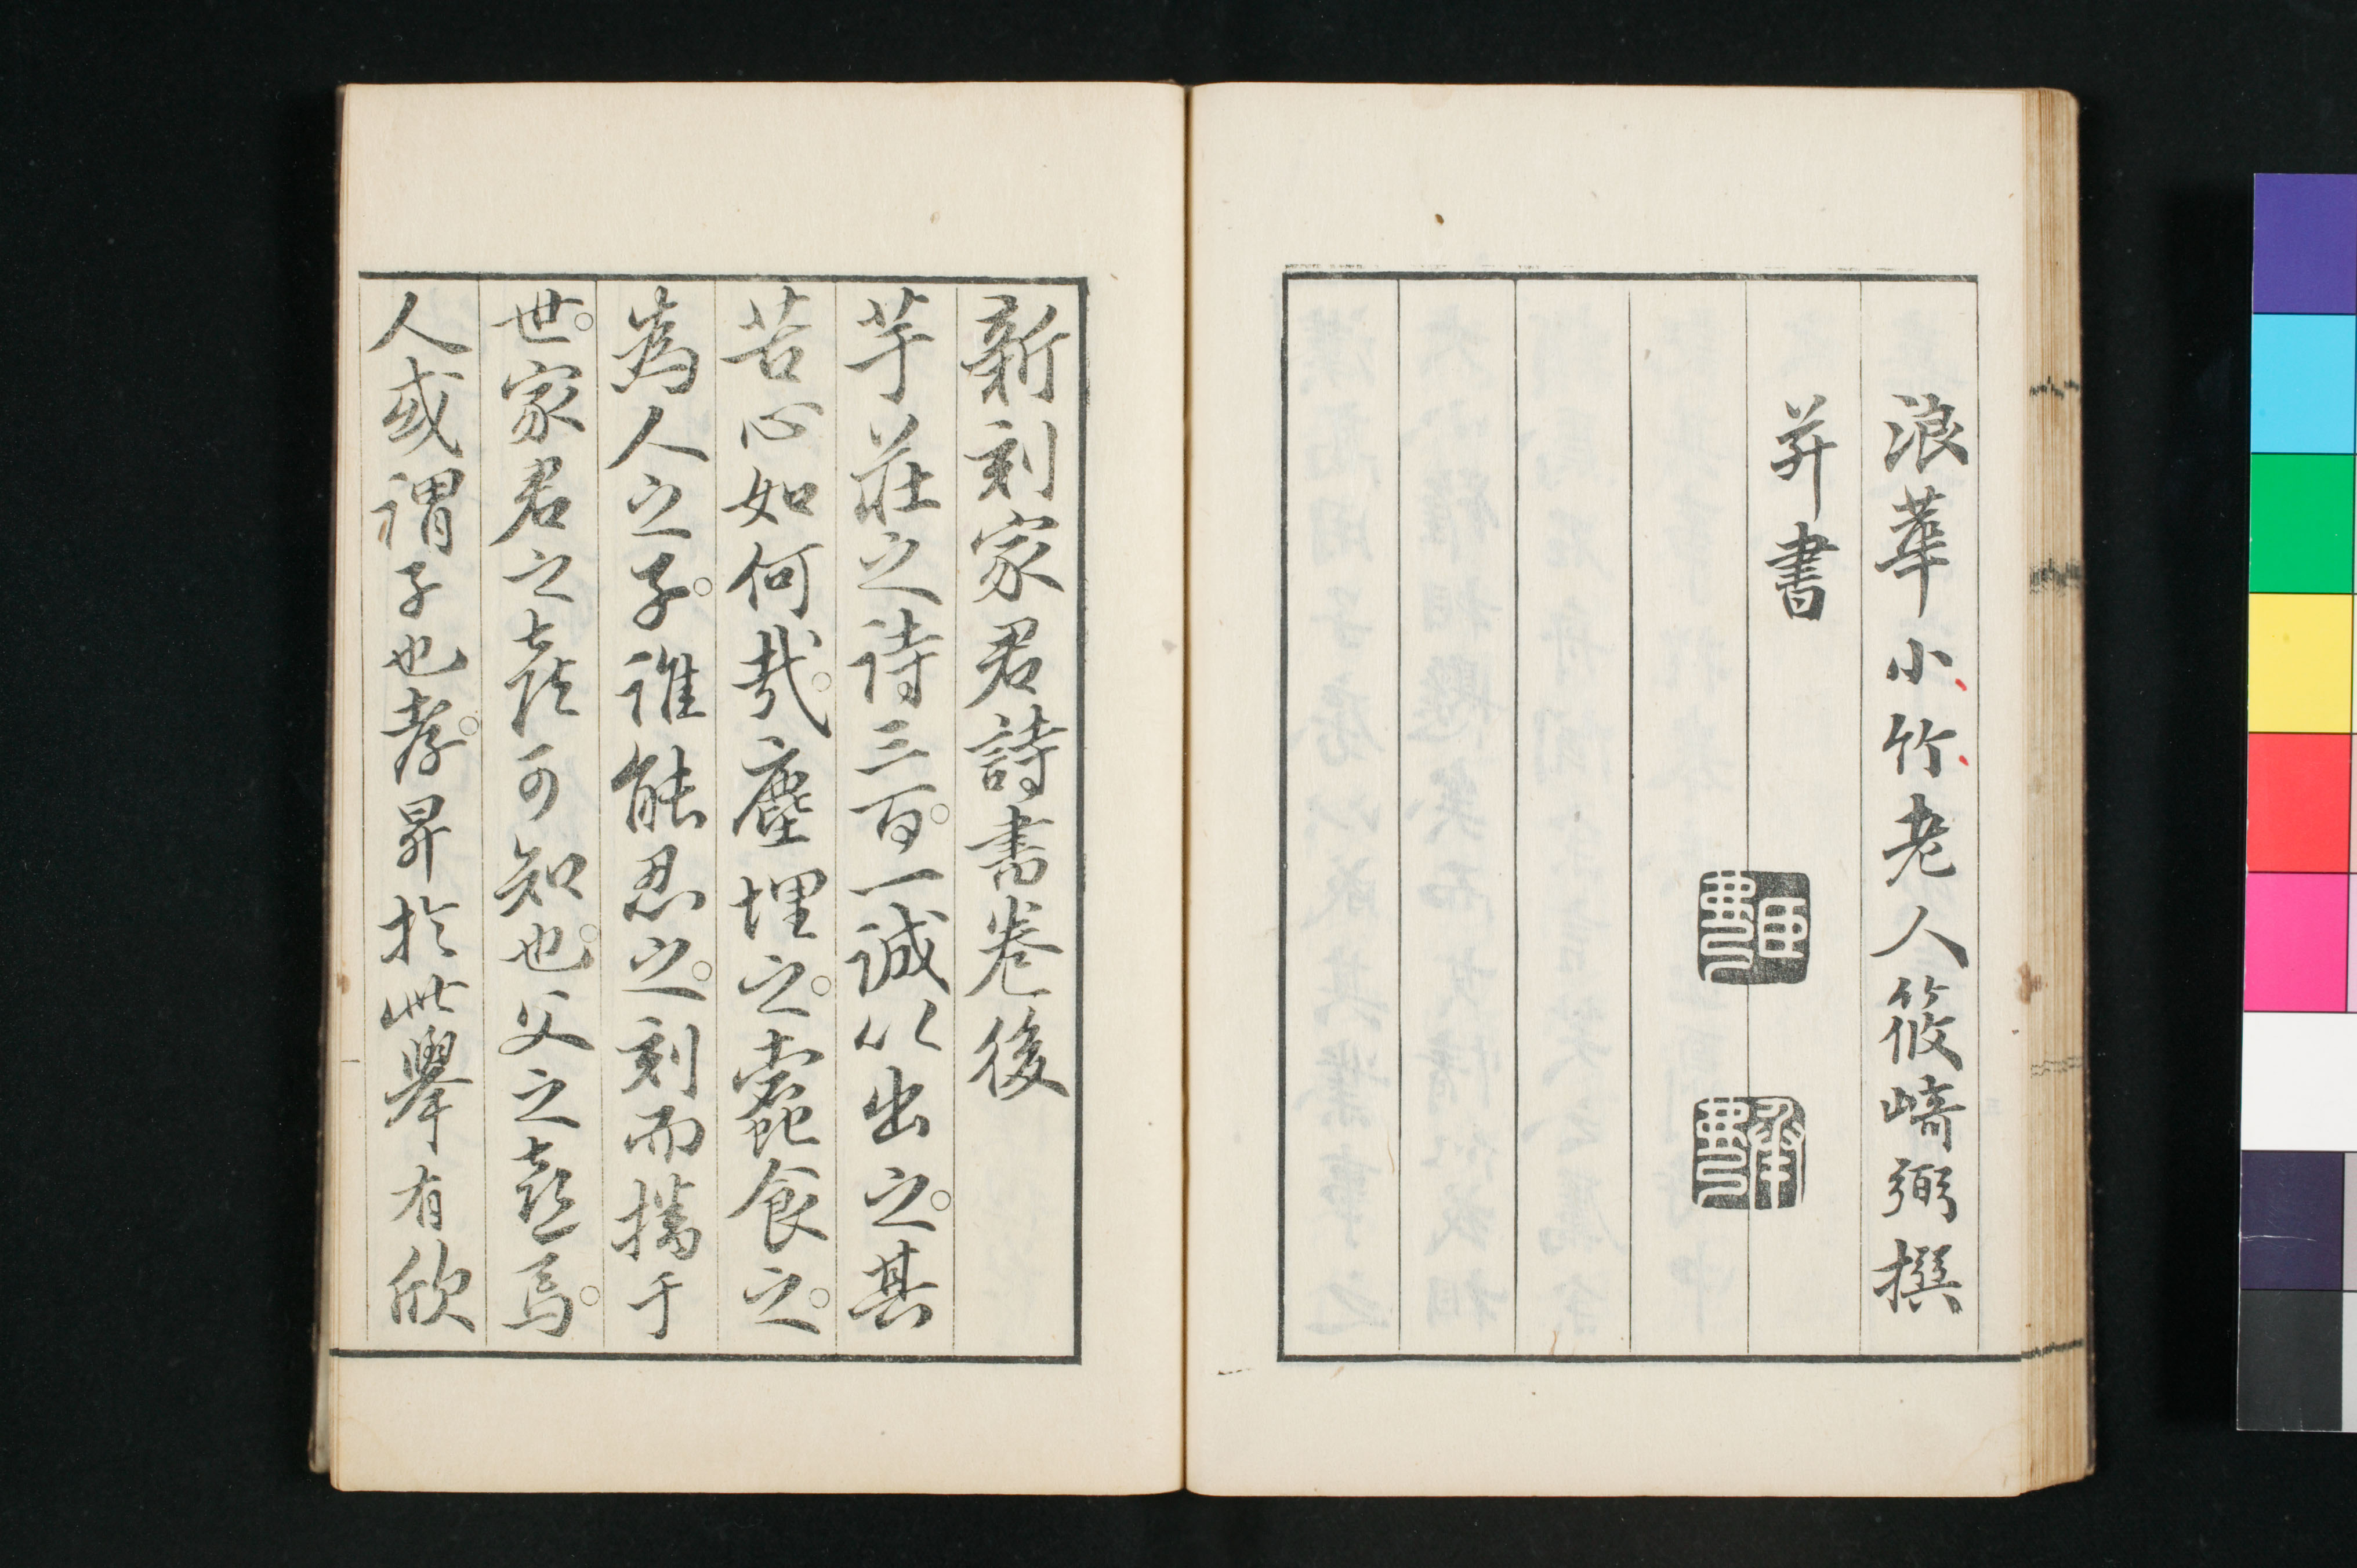 浪華小竹老人筱崎弼撰
并書
新刻家君詩書卷後
芋莊之詩三百。一誠以出之。其
苦心如何哉。塵埋之。蠹食之。
為人之子。誰能忍之。刻而播于
世。家君之喜可知也。父之喜焉。
人或謂子也孝。昇於此擧有欣